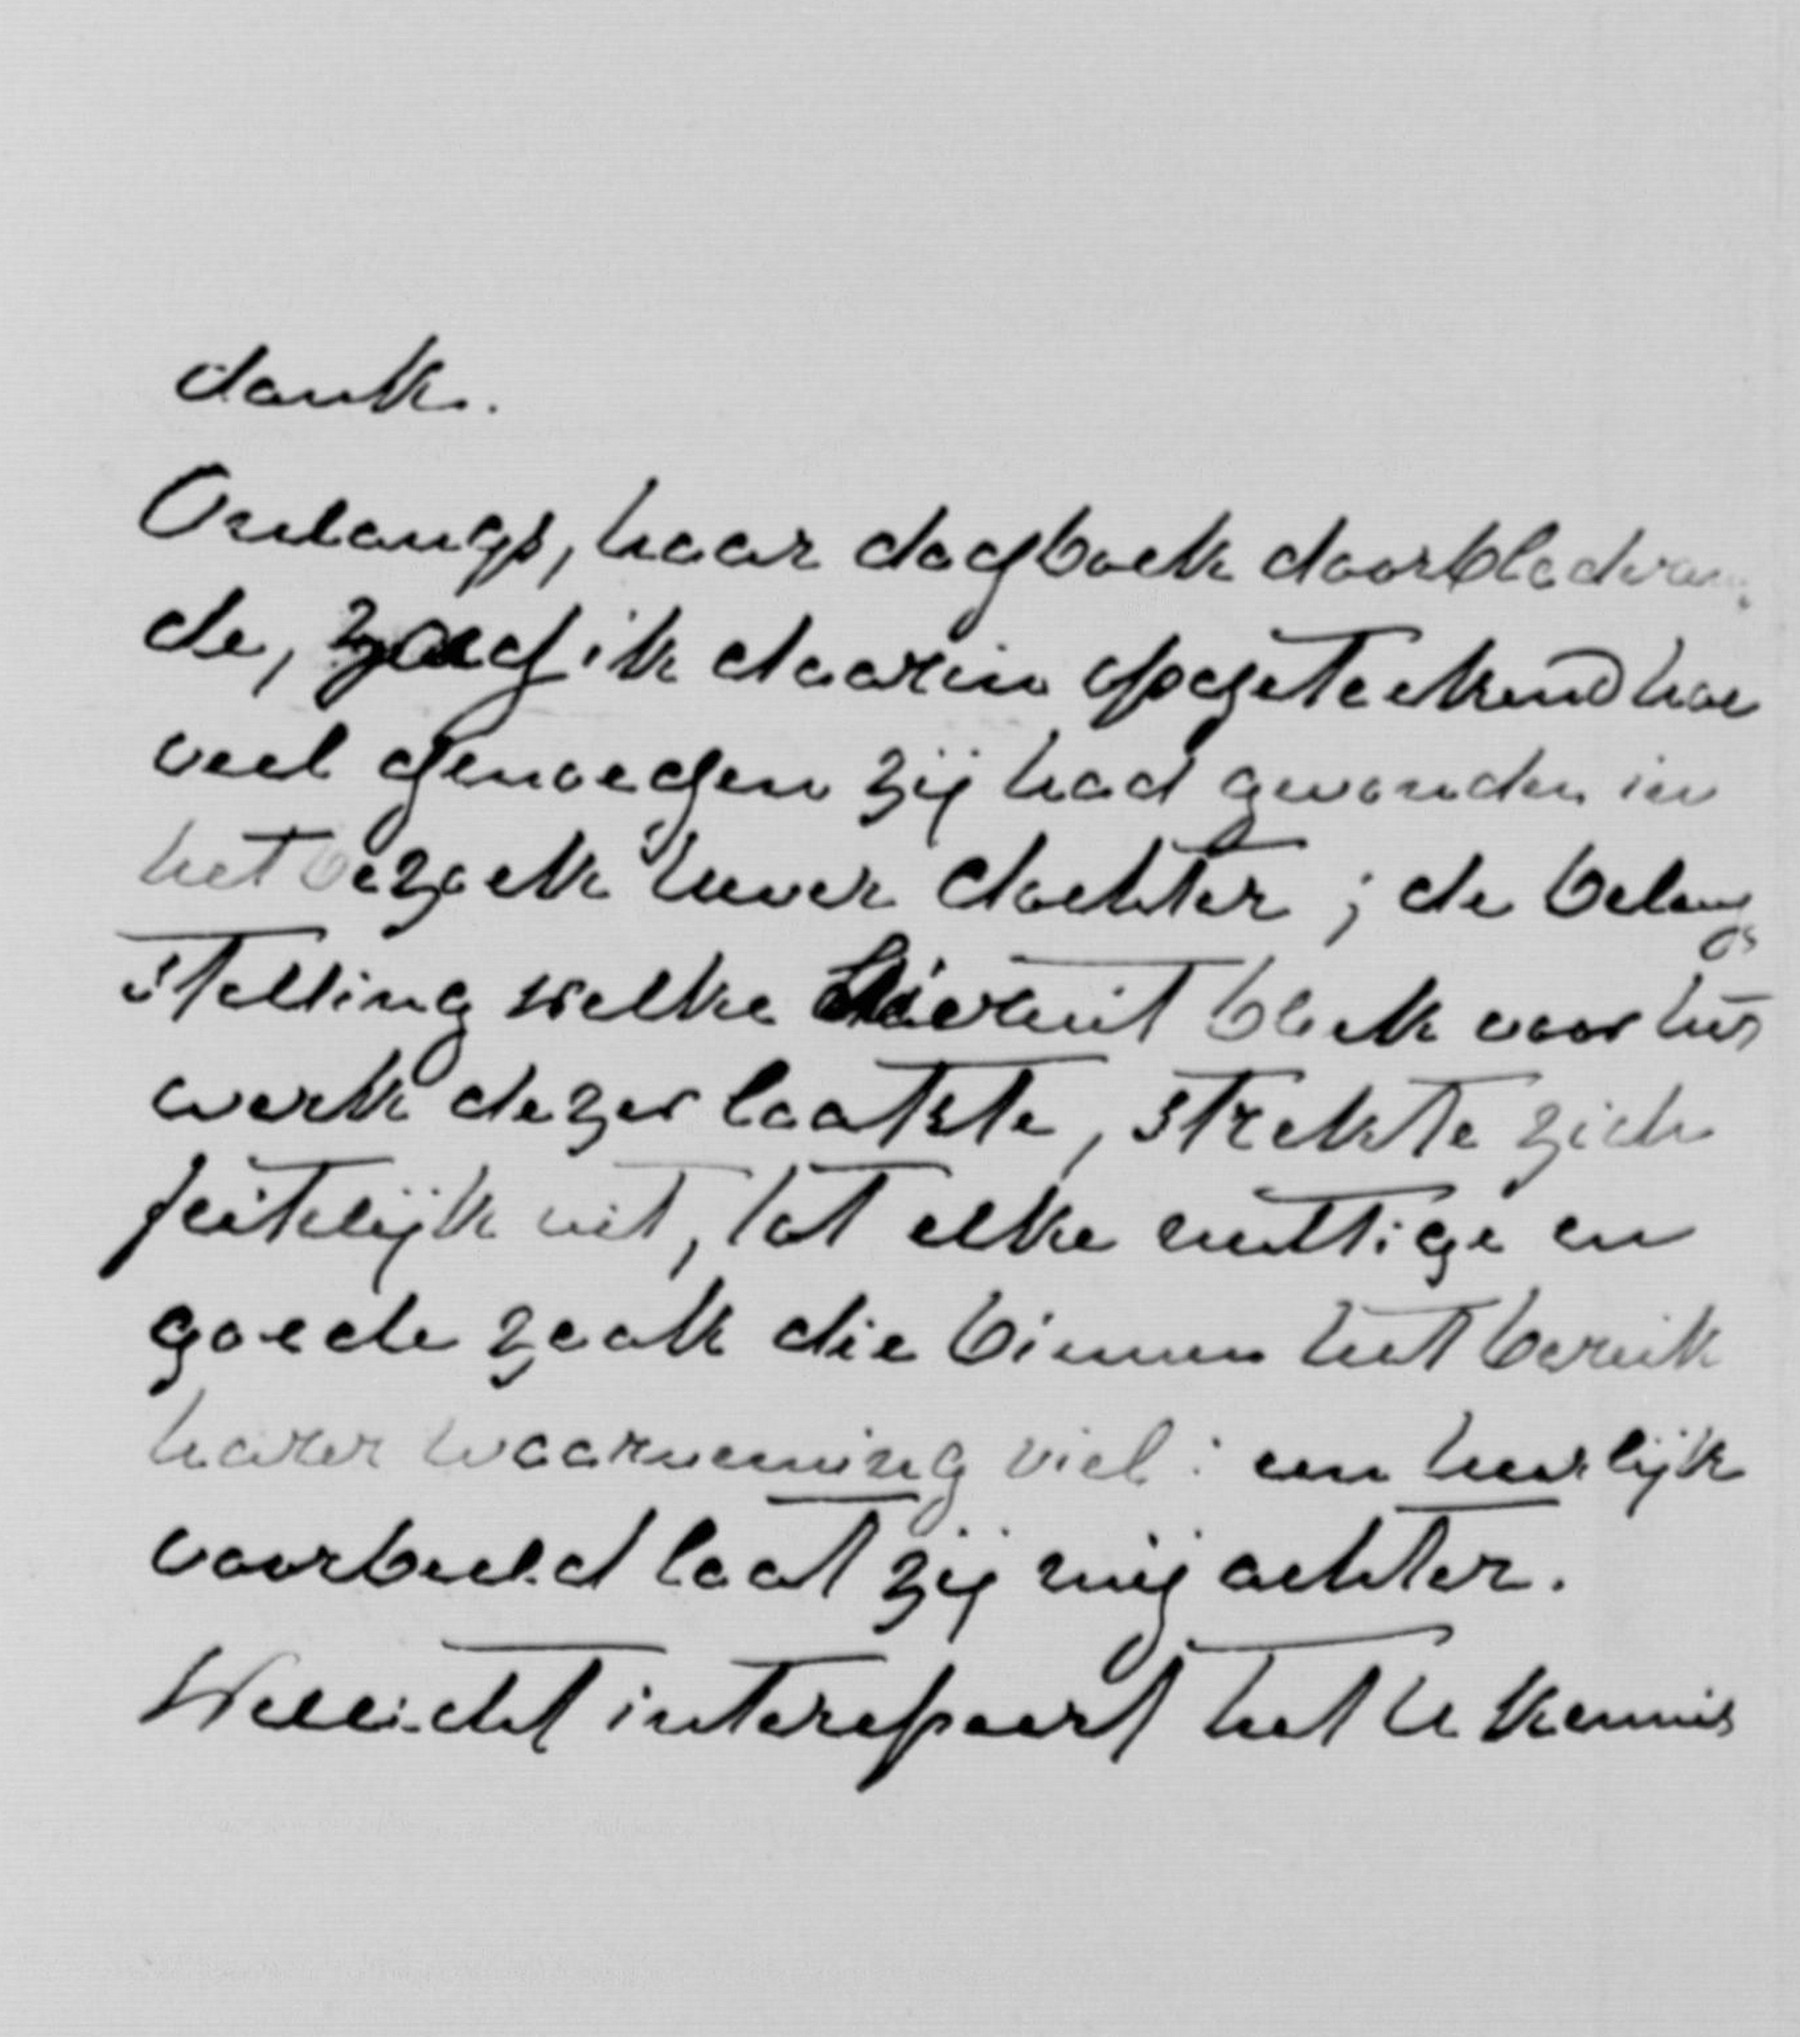 dank.
Onlangs, haar dagboek doorbladeren-
de, zag ik daarin opgeteekend hoe
veel genoegen zij had gevonden in
het bezoek Uwer dochter; de belang
stelling welke hieruit bleek voor het
werk dezer laatste, strekte zich
feitelijk uit, tot elke nuttige en
goede zaak die binnen het bereik
harer waarneming viel: een heerlijk
voorbeeld laat zij mij achter.
Wellicht interesseert het U kennis